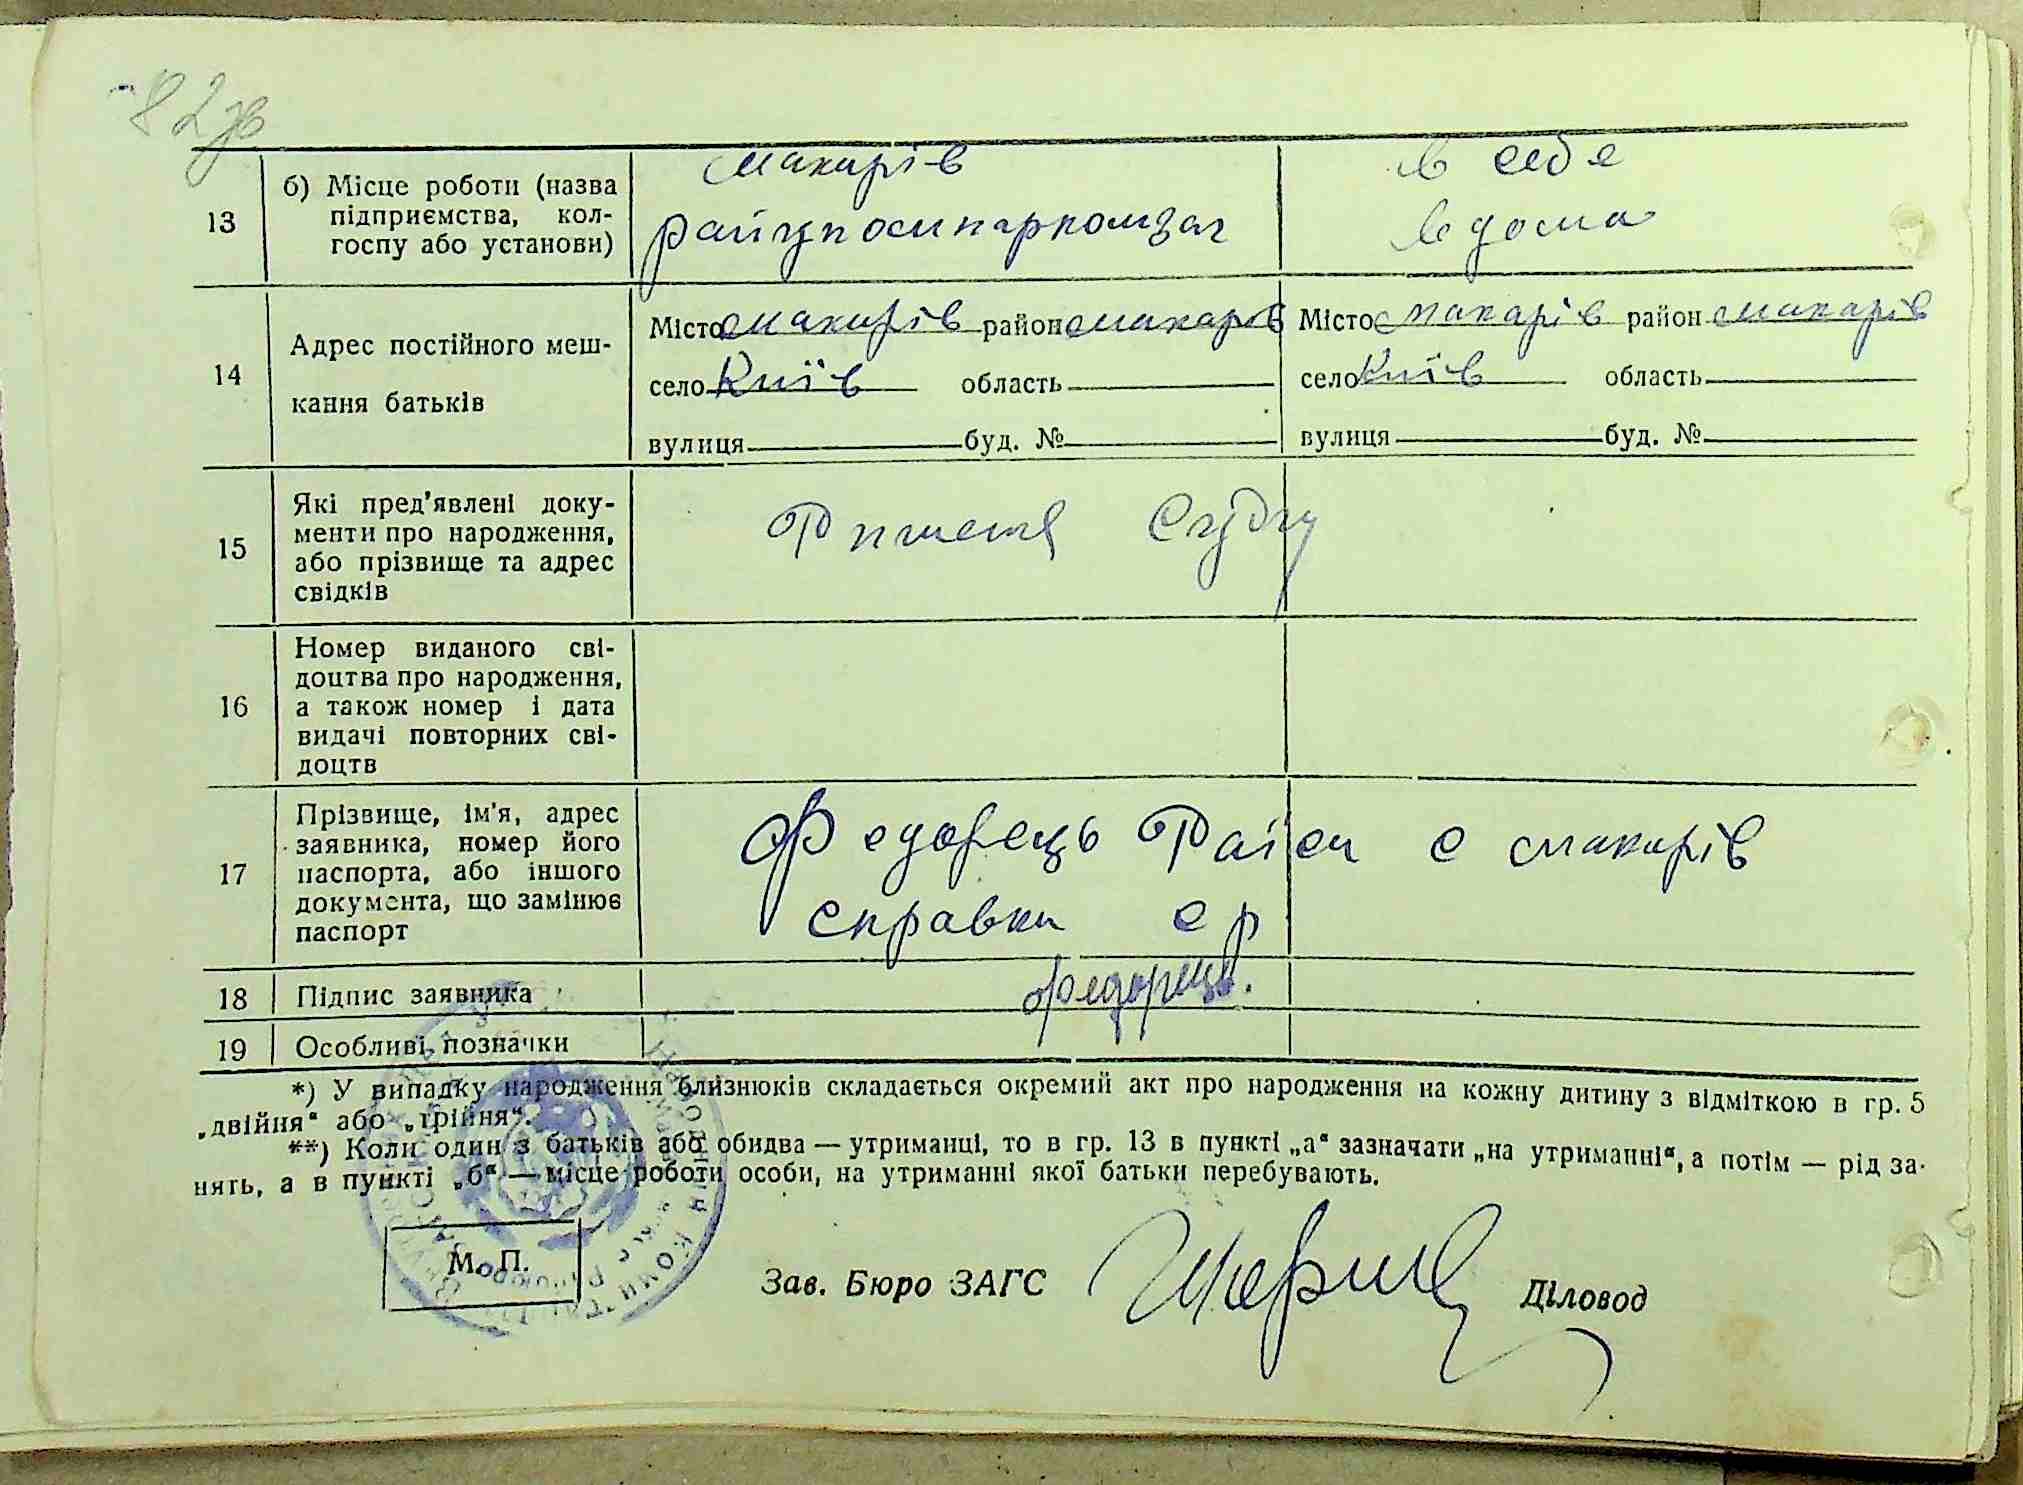 82зв
13
б) Місце роботи (назва
підприємства, кол-
госпу або установи)
Макарів
в себе
вдома
14
Адрес постійного меш-
кання батьків
Місто Макарів район Макарів
село Київ область
вулиця буд. №
Місто Макарів район Макарів
село Київ область
вулиця буд. №
15
Які пред'явлені доку-
менти про народження,
або прізвище та адрес
свідків
16
Номер виданого сві-
доцтва про народження,
а також номер і дата
видачі повторних сві-
доцтв
17
Прізвище, ім'я, адрес
заявника, номер його
паспорта, або іншого
документа, що замінює
паспорт
Федорець Раїса с Макарів
справки с р
18
Підпис заявника
Федорець.
19
Особливі позначки
*) У випадку народження близнюків складається окремий акт про народження на кожну дитину з відміткою в гр. 5
„двійня“ або „трійня“.
**) Коли один з батьків або обидва — утриманці, то в гр. 13 в пункті „а“ зазначати „на утриманні“, а потім — рід за-
нять, а в пункті „б“ — місце роботи особи, на утриманні якої батьки перебувають.
М. П.
Зав. Бюро ЗАГС
Діловод